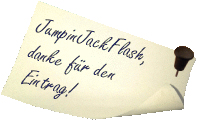 JumpinJackFlash,
danke für den
Eintrag!